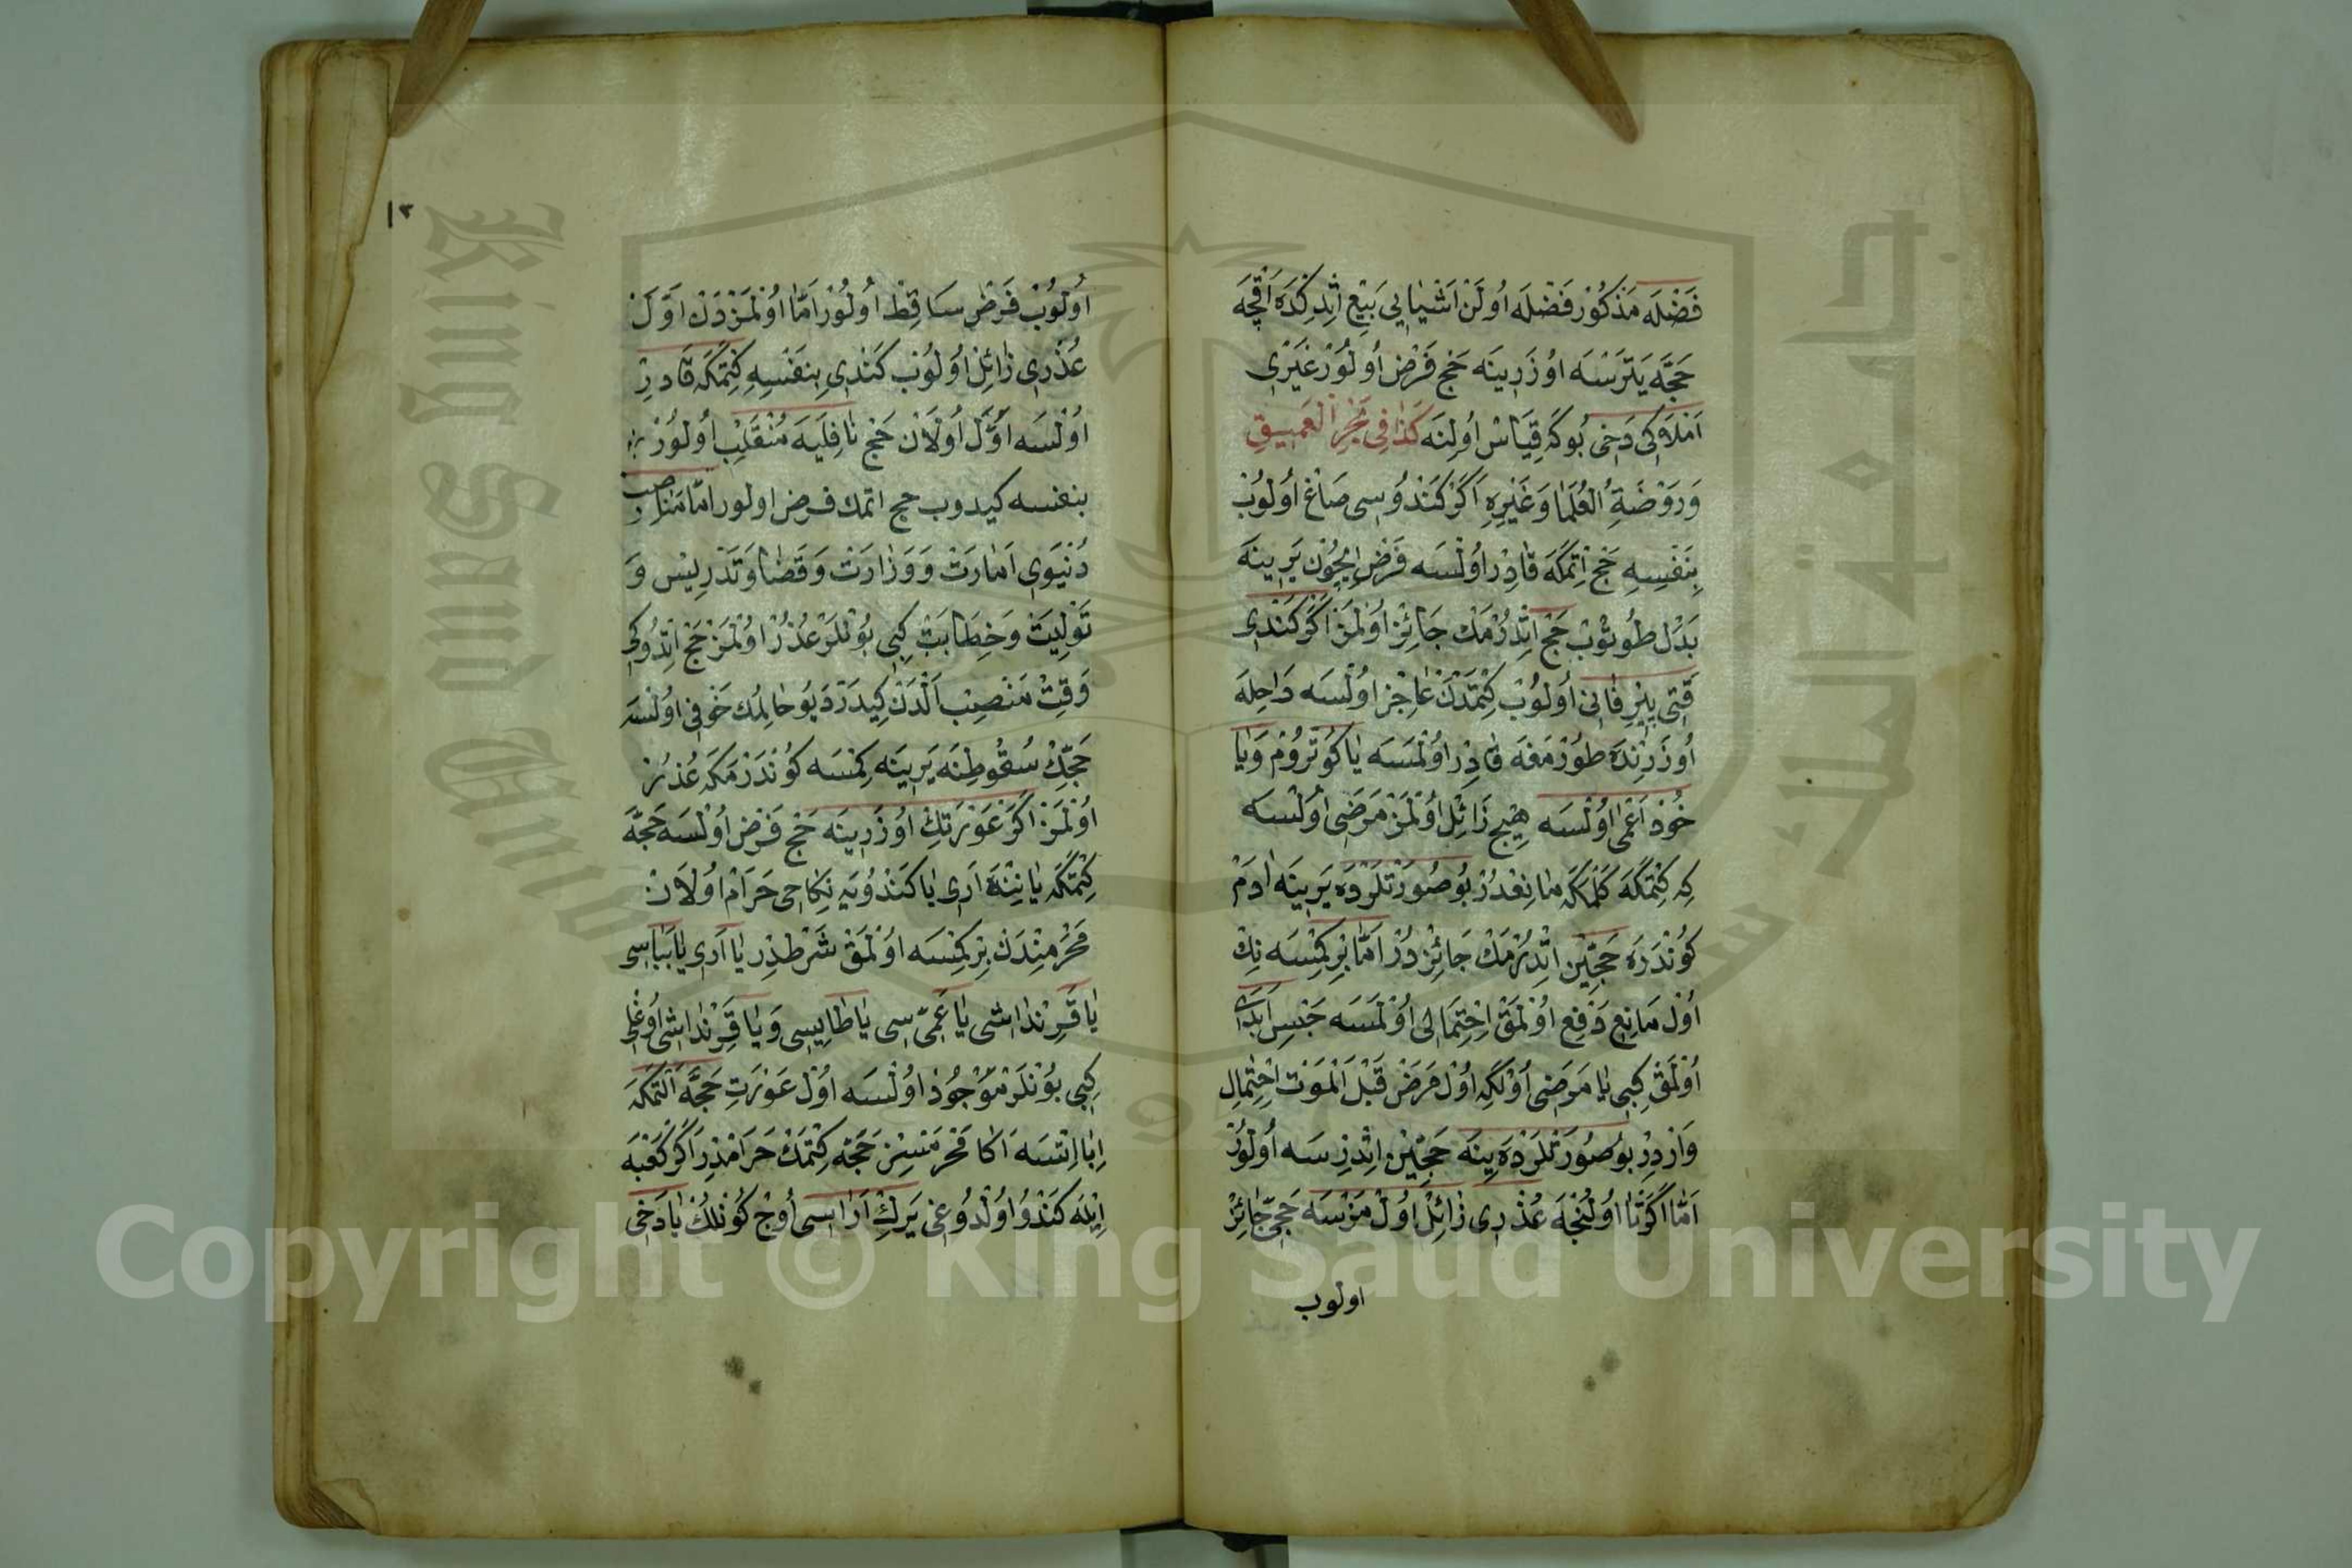 فَضْلَه مَذْكُورْ فَضْلَه اُولَنْ اَشْيَايِي بَيْعِ اَتْدِكْدَه اَقْچَه
حَجَّه يَتَرْسَه اوُزَرِينَه حَجْ فَرْضْ اُولُورْ غَيْرِي
اَمْلَاكِي دَخِي بُوكَه قِيَاسْ اُولِنَه كَذَا فِي بَحْرِ الْعَمِيقِ
وَرَوْضَةِ الْعُلَمَا وَغَيْرِهِ اَكَرْ كَنْدُوسِي صَاغْ اُولُوبْ
بِنَفْسِهِ حَجْ اِتْمَكَه قَادِرْ اُولْسَه فَرْضْ اِيچُونْ يَرِينَه
بَدَلْ طُوتُوبْ حَجْ اِتْدُرْمَكْ جَائِزْ اُولْمَزْ اَكَرْ كَنْدِي
قَتِي پِيرِ فَانِي اُولُوبْ كِتْمَدَنْ عَاجِزْ اُولْسَه رَاحِلَه
اُوزَرِنْدَه طُورْمَغَه قَادِرْ اُولْمَسَه يَا كُوتُرُومْ وَيَا
خُودْ اَعْمَى اُولْسَه هِيچْ زَائِلْ اُولْمَزْ مَرَضِي اُولْسَه
كِه كِتْمَكَه كَلْمَكَه مَانِعْدُرْ بُو صُورَتْلَرْدَه يَرِينَه اَدَمْ
كُونْدَرَه حَجِّينْ اِتْدُرْمَكْ جَائِزْ دُرْ اَمَّا بِرْ كِمْسَه نِكْ
اُولْ مَانِعِ دَفِعِ اُولْمَقْ اِحْتِمَالِي اُولْمَسَه حَبْسِ اَبَدِي
اُولْمَقْ كِبِي يَا مَرَضِي اُولَكِه اُولْ مَرَضْ قَبْلَ الْمَوْتِ اِحْتِمَالِ
وَارْدِرْ بُو صُورَتْلَرْدَه يِنَه حَجِّينْ اِتْدِرْسَه اُولُورْ
اَمَّا اَكَرْ تَا اُولُنْجَه عُذْرِي زَائِلْ اُولْمَزْسَه حَجِّي جَائِزْ
اولوب
١٣
اُولُوبْ فَرْضِ سَاقِطْ اُولُورْ اَمَّا اُولْمَزْدَنْ اَوَّلْ
عُذْرِي زَائِلْ اُولُوبْ كَنْدِي بِنَفْسِهِ كِتْمَكَه قَادِرْ
اُولْسَه اَوَّلْ اُولَانْ حَجْ نَافِلَيَه مُنْقَلِبْ اُولُورْ
بنفسه كيدوب حج اتمك فرض اولور امّا مناصب
دُنْيَوِي اَمَارَتْ وَوَزَارَتْ وَقَضَا وَتَدْرِيسْ وَ
تَوْلِيَتْ وَخِطَابَتْ كِبِي بُونْلَرْ عُذُرْ اُولْمَزْ حَجْ اِتْدُوكِي
وَقِتْ مَنْصِبْ اَلْدَنْ كِيدَرْ دَيُو حَالِمُكْ خَوْفِي اُولْسَه
حَجِّكْ سُقُوطِنَه يَرِينَه كِمْسَه كُونْدَرْمَكَه عُذُرْ
اُولْمَزْ اَكَرْ عَوْرَتِكْ اوُزَرِينَه حَجْ فَرْضْ اُولْسَه حَجَّه
كِتْمَكَه يَانِنْدَه اَرِي يَا كَنْدُويَه نِكَاحِي حَرَامْ اُولَانْ
مَحْرَمِنْدَنْ بِرْ كِمْسَه اُولْمَقْ شَرْطْدِرْ يَا اَرِي يَا بَابَاسِي
يَا قَرِنْدَاشِي يَا عَمِّي سِي يَا طَايِيسِي وَيَا قَرِنْدَاشِي اُوغْلِي
كِبِي بُونْلَرْ مَوْجُودْ اُولْسَه اُولْ عَوْرَتِ حَجَّه اَلْتَمَكَه
اِبَا اِتْسَه اَكَا مَحْرَمْسِزْ حَجَّه كِتْمَكْ حَرَامْدِرْ اَكَرْ كَعْبَه
اِيْلَه كَنْدُو اُولْدُوغِي يَرِكْ اَرَاسِي اُوچْ كُونْلُكْ يَا دَخِي